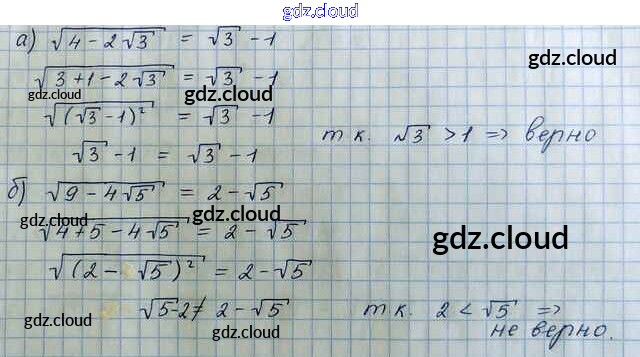 gdz.cloud
а) √(4 - 2√3) = √3 - 1
gdz.cloud
√(3 + 1 - 2√3) = √3 - 1
gdz.cloud
gdz.cloud
√((√3 - 1)²) = √3 - 1
√3 - 1 = √3 - 1
т к. √3 > 1 => верно
б) √(9 - 4√5) = 2 - √5
gdz.cloud
gdz.cloud
√(4 + 5 - 4√5) = 2 - √5
gdz.cloud
√((2 - √5)²) = 2 - √5
√5 - 2 ≠ 2 - √5
т к. 2 < √5 =>
не верно.
gdz.cloud
gdz.cloud